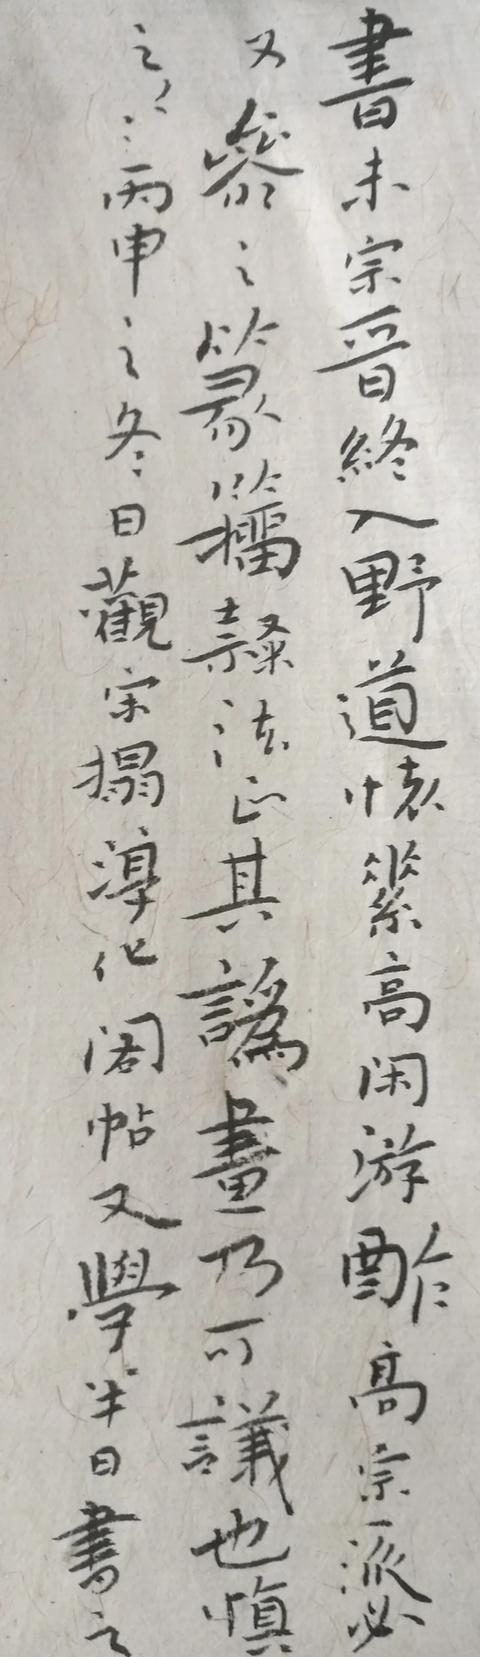 書未宗晉終入野道懷素高閑游酢高宗派必
又參之篆籀隸法正其譌畫乃可議也慎
之〻丙申之冬日觀宋搨淳化閣帖又學半日書之